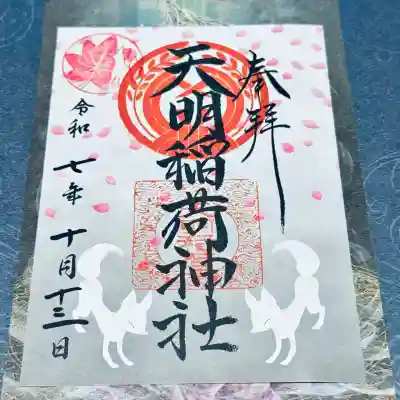 奉拝
天明稲荷神社
令和七年十月十三日